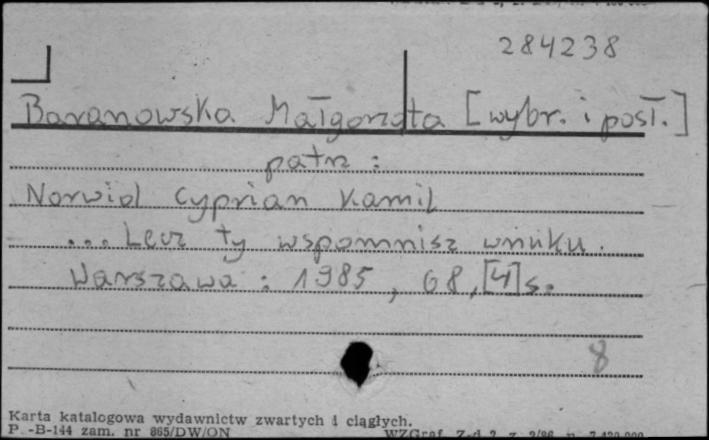 284238
Baranowska Małgorzata [wybr. i posł.]
patrz :
Norwid Cyprian Kamil
... Lecz ty wspomnisz wnuku.
Warszawa : 1985, 68, [4] s.
8
Karta katalogowa wydawnictw zwartych i ciągłych.
P -B-144 zam. nr 865/DW/ON
WZGraf. Z-d 2